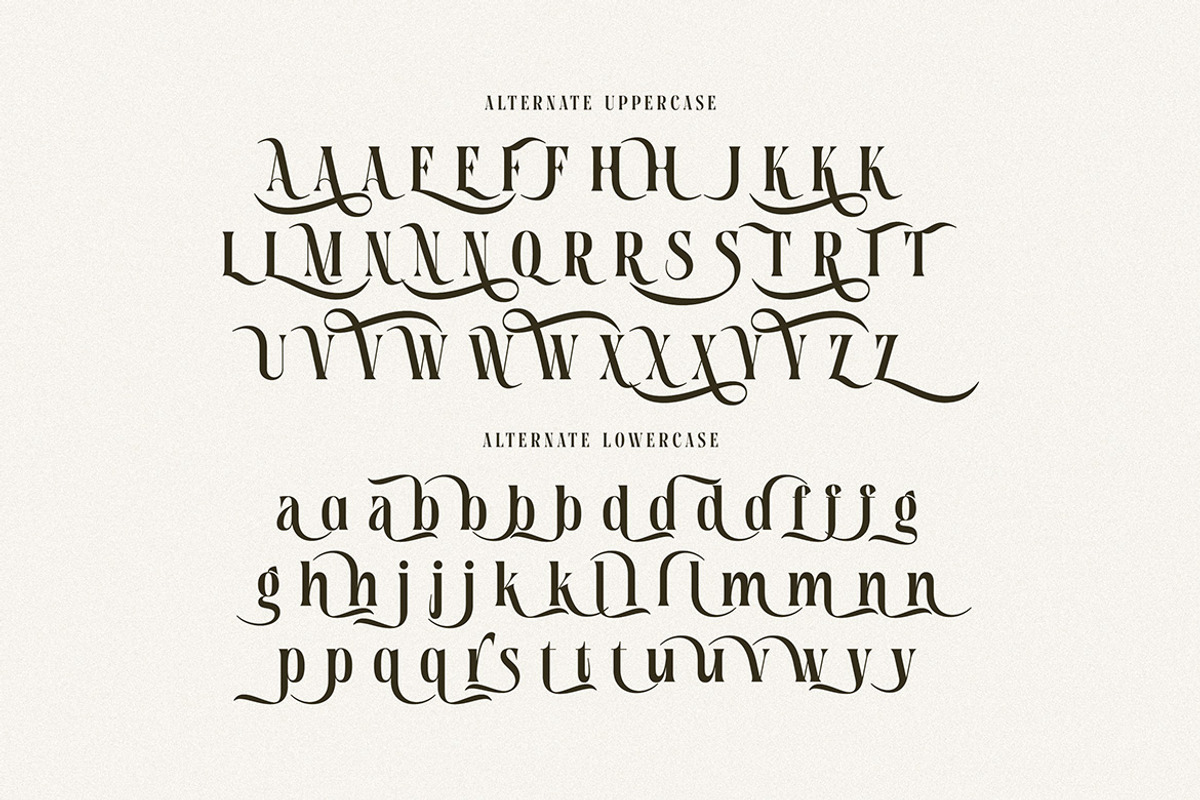 ALTERNATE UPPERCASE
AAAEEFFHHJKKK
LLMNNNQRRSSTRTT
UVVWWWXXXYYZZ
ALTERNATE LOWERCASE
aaabbbbddddfffg
ghhjjjkkllllmmnn
ppqqrstttuuvwyy